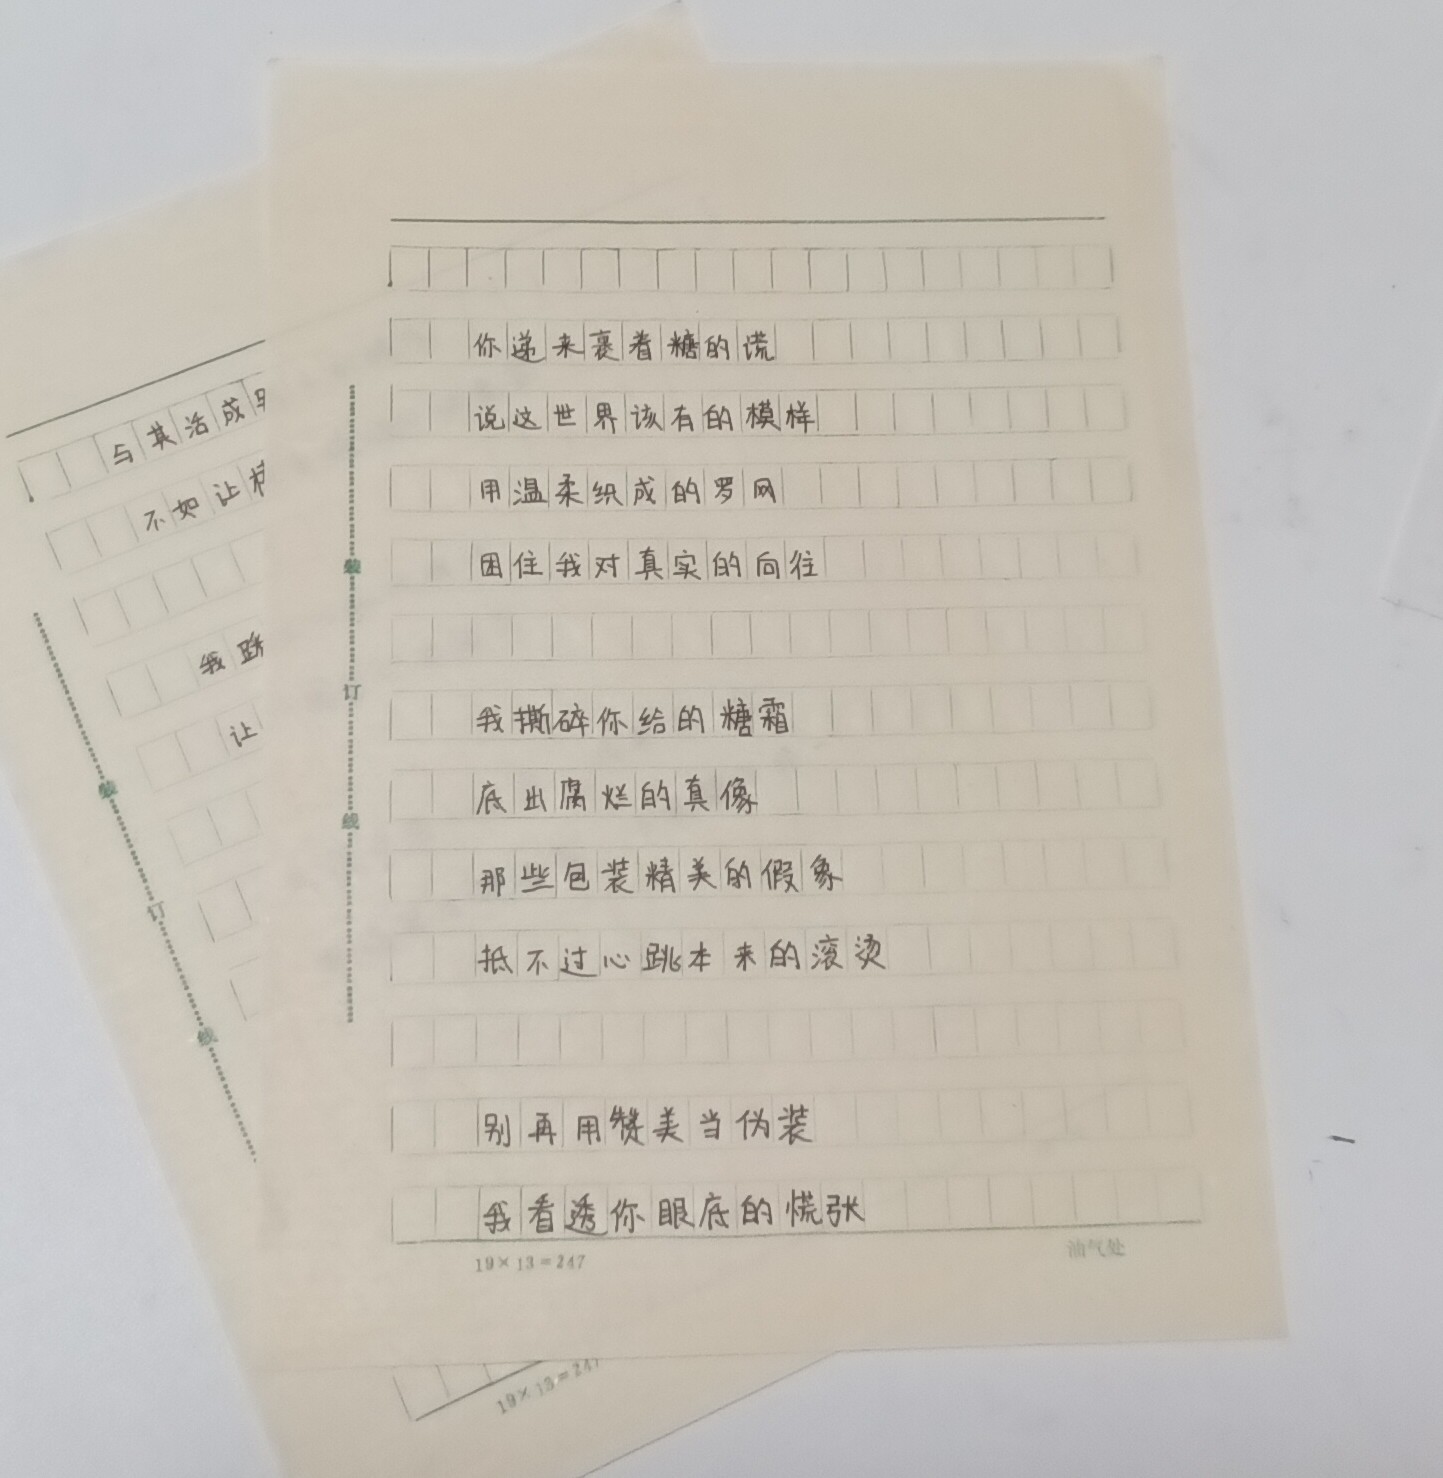 你递来裹着糖的谎
说这世界该有的模样
用温柔织成的罗网
困住我对真实的向往
我撕碎你给的糖霜
底出腐烂的真像
那些包装精美的假象
抵不过心跳本来的滚烫
别再用赞美当伪装
我看透你眼底的慌张
19×13=247
油气处
装
订
线
与其活成
不如让
我
让
装
订
线
19×13=247